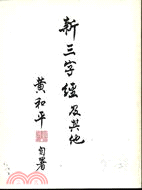 新三字經及其他
黃和平
自署